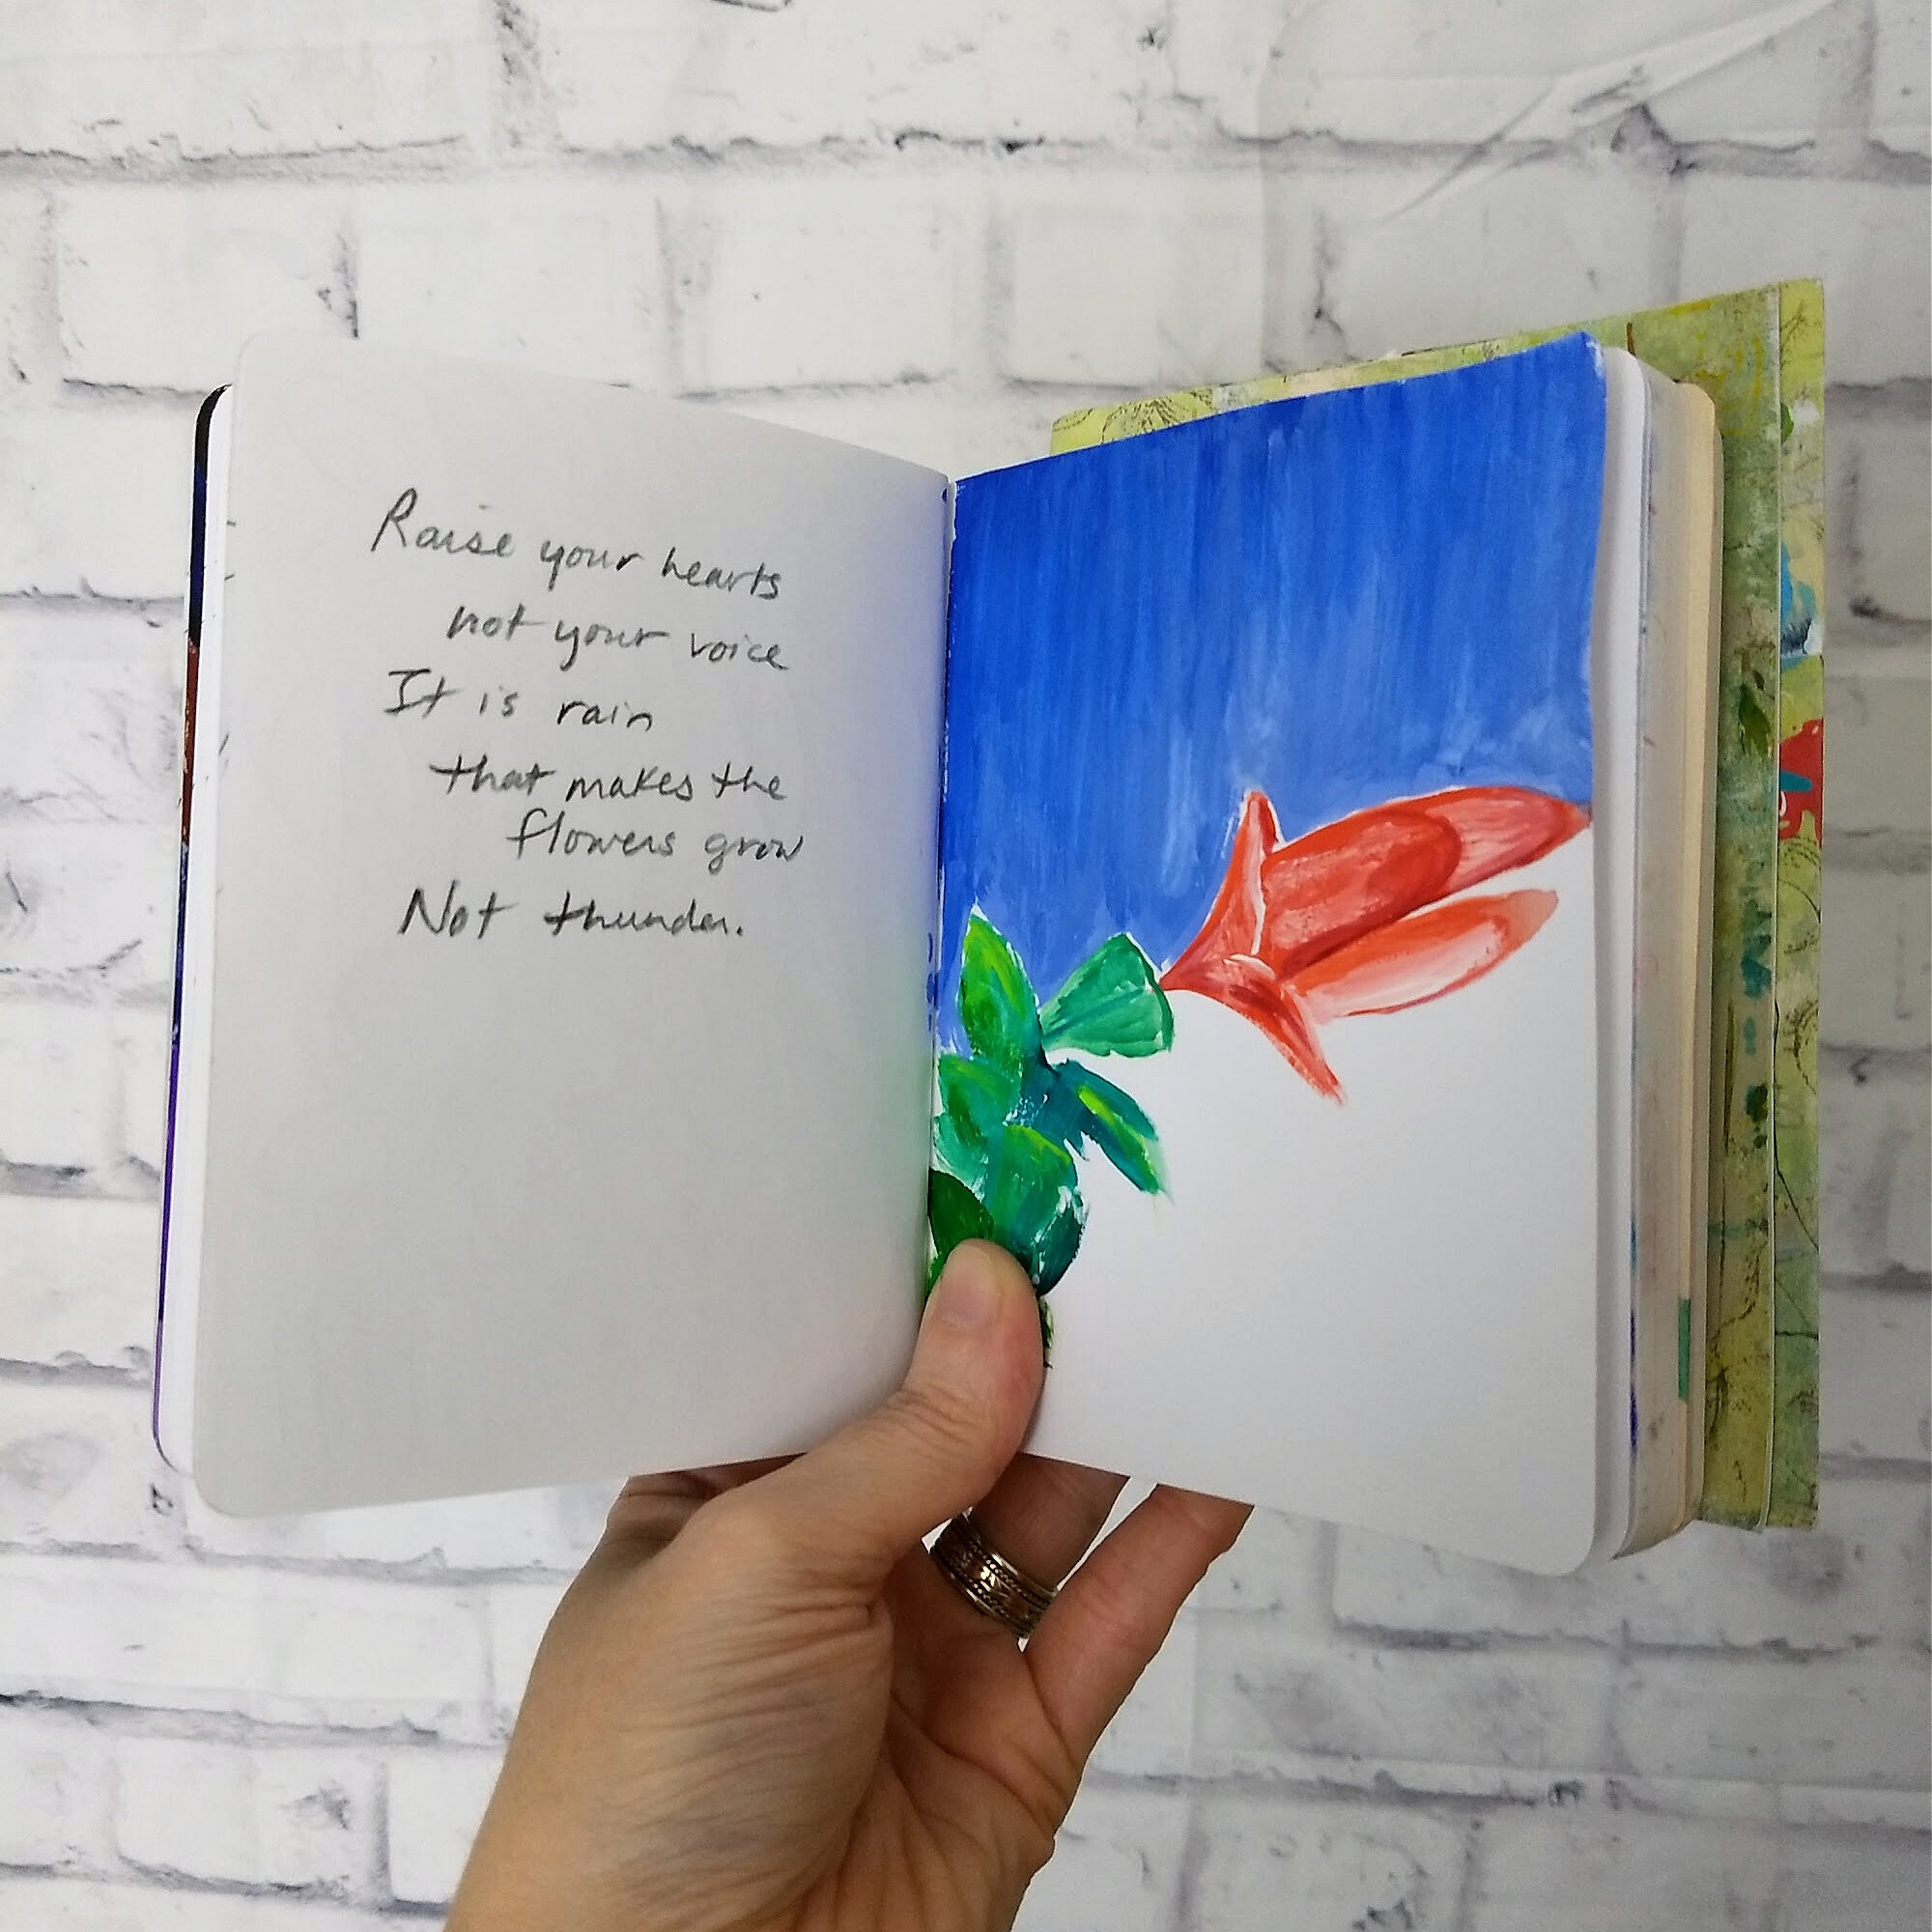 Raise your hearts
not your voice
It is rain
that makes the
flowers grow
Not thunder.